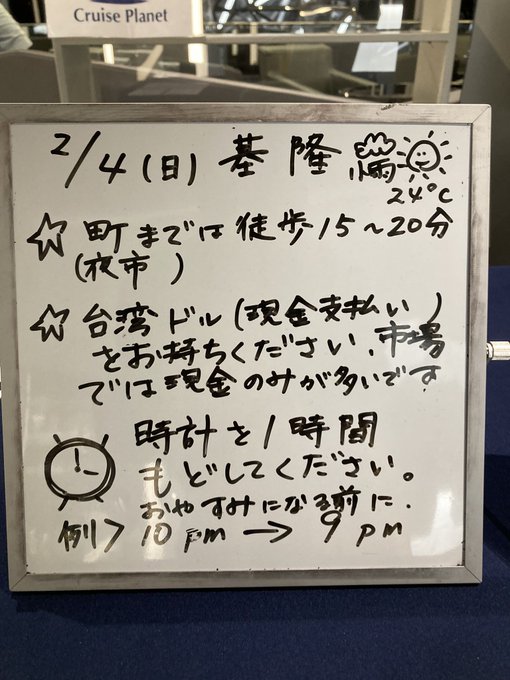 Cruise Planet
2/4(日) 基隆 小雨
24℃
☆町までは徒歩15〜20分
(夜市)
☆台湾ドル(現金支払い)
をお持ちください、市場
では現金のみが多いです
時計を1時間
もどしてください。
おやすみになる前に.
例> 10pm → 9pm